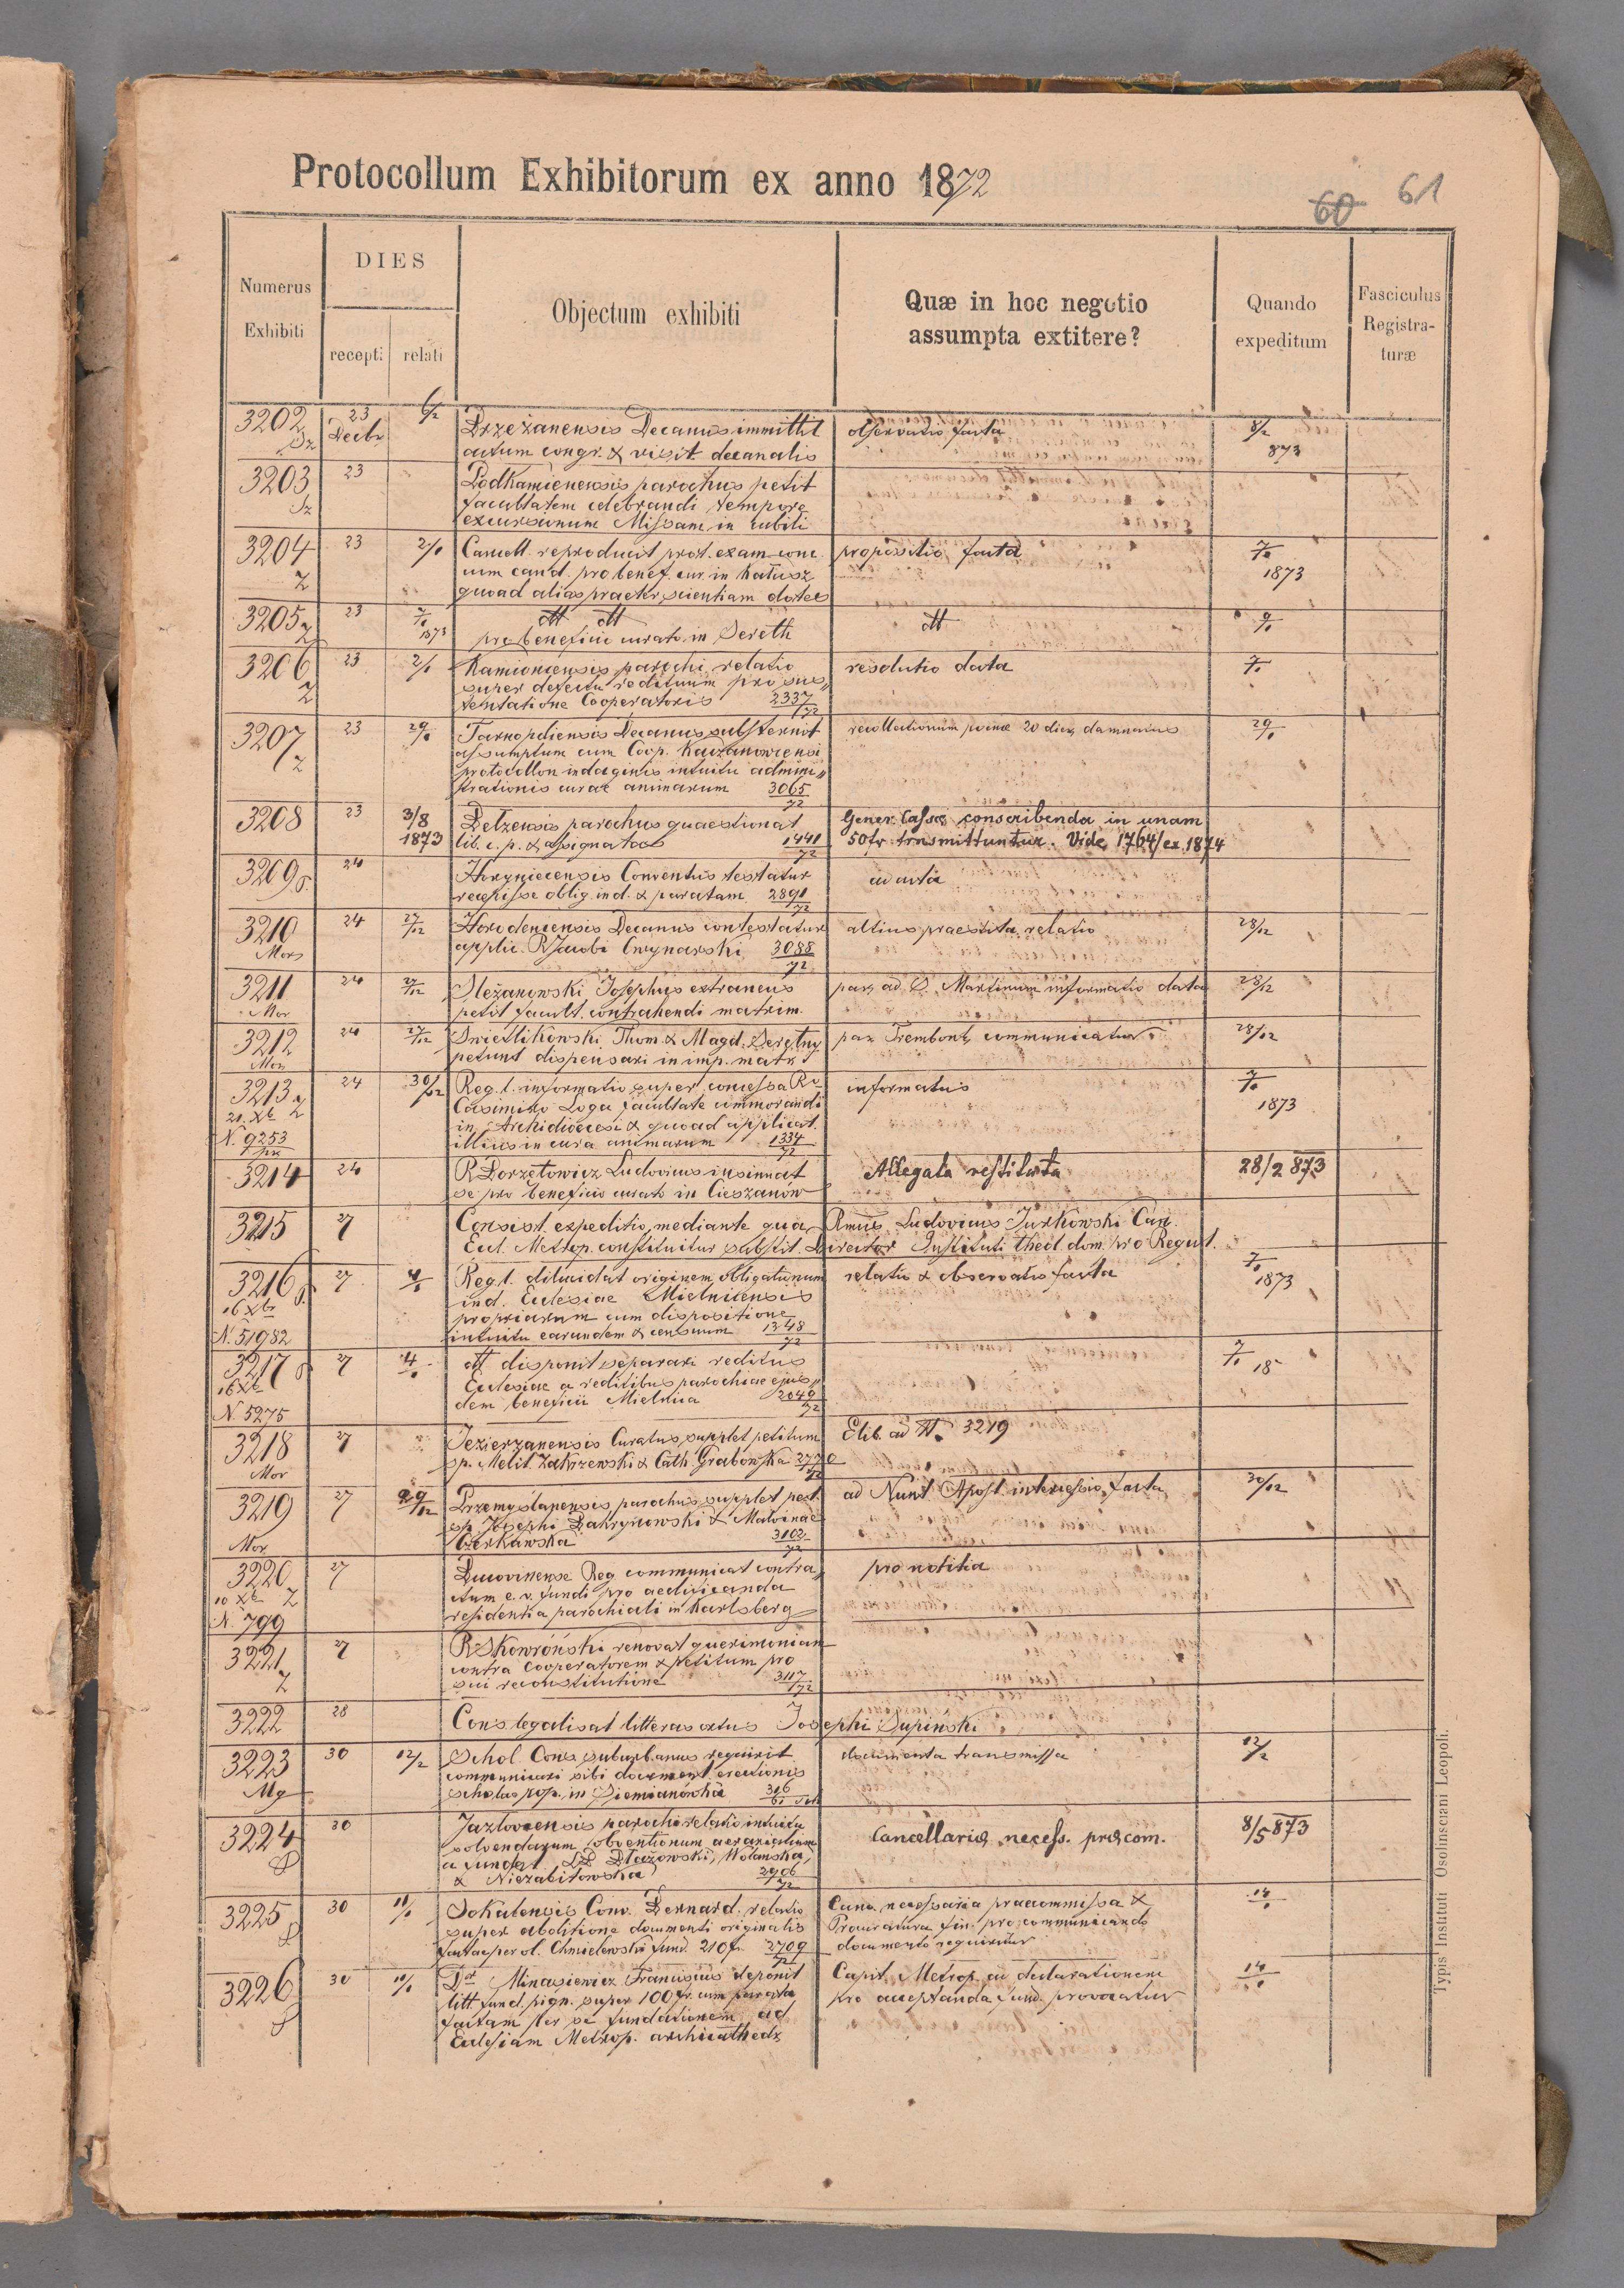 Protocollum Exhibitorum ex anno 1872
60 61
Numerus Exhibiti
DIES
recepti relati
Objectum exhibiti
Quæ in hoc negotio assumpta extitere?
Quando expeditum
Fasciculus Registraturæ
3202 23 Decbr 6/2 Brzeżanensis Decanus immittit observatio facta 8/2 873
actum congr. & visit. decanalis
3203 23 Podkamienensis parochus petit
facultatem celebrandi tempore
excursionum Missam in cubili
3204 23 2/1 Cancell. reproducit prot. exam. conc. propositio facta 7/1 1873
cum cand. pro benef. cur. in Kałusz
quoad alias praeter scientiam dotes
3205 23 7/1 1873 dtt dtt dtt 9/1
pro beneficio curato in Sereth
3206 23 2/1 Kamioncensis parochi relatio resolutio data 7/1
super defectu redituum pro sus„
tentatione Cooperatoris 2337/72
3207 23 29/1 Tarnopoliensis Decanus substernit recollectionum poenae 20 dier. damnatus 29/1
assumptum cum Coop. Kaczanoviensi
protocollon indaginis intuitu admini„
strationis curae animarum 3065/72
3208 23 3/8 1873 Belzensis parochus quaestionat Gener. Cassae conscribenda in unam
lib. c. p. & assignatos 1441/72 50fr transmittuntur. Vide 1764/ex 1874
3209 24 Horyniecensis Conventus testatur ad acta
recepisse oblig. ind. & paratam 2891/72
3210 24 27/12 Horodencensis Decanus contestatur altius praestita relatio 28/12
Mor applic. R. Jacobi Cwynarski 3088/72
3211 24 27/12 Sleżanowski Josephus extraneus par. ad S. Martinum informatio data 28/12
Mor petit facult. contrahendi matrim.
3212 24 27/12 Swietlikowski Thom. & Magd. Seretny par. Trembowl. communicatur 28/12
Mor petunt dispensari in imp. matr.
3213 24 30/12 Reg. l. informatio super concessa Ro informatus 7/1 1873
21. Xb Casimiro Loga facultate commorandi
N. 9253 in Archidioecesi & quoad applicat.
illius in cura animarum 1334/72
3214 24 R. Borzętowicz Ludovicus insinuat Allegata restituta 28/2 873
se pro beneficio curato in Cieszanów
3215 27 Consist. expeditio, mediante qua Rmus Ludovicus Jurkowski Can.
Eccl. Metrop. constituitur substit. Director Instituti theol. dom. pro Regul.
3216 27 4/1 Reg. l. dilucidat originem obligationum relatio & observatio facta 7/1 1873
16 Xb ind. Ecclesiae Mielnicensis
propriarum cum dispositione
N. 51982 intuitu earundem & censuum 1348/72
3217 27 4/1 dtt disponit separari reditus 7/1 18
16 Xb Ecclesiae a reditibus parochiae ejus„
N. 5275 dem beneficii Mielnica 2049/72
3218 27 Jezierzanensis Curatus supplet petitum Elib. ad N. 3219
Mor sp. Melit. Zakrzewski & Cath. Grabowska 2770/72
3219 27 29/12 Przemyslanensis parochus supplet petit. ad Nunt. Apost. intercessio facta 30/12
sp. Josephi Zakrynowski & Malvinae
Mor Czerkawska 3102/72
3220 27 Bucovinense Reg. communicat contra„ pro notitia
10 Xb ctum e. v. fundi pro aedificanda
N. 799 residentia parochiali in Karlsberg
3221 27 R. Skowroński renovat querimoniam
contra Cooperatorem & petitum pro
sui reconstitutione 3117/72
3222 28 Cons. legalisat litteras ortus Josephi Supiński
3223 30 12/2 Schol. Cons. suburbanus requirit documenta transmissa 12/2
communicari sibi document. erectionis
Mg scholae pop. in Siemianówka 316/61
3224 30 Jazlovecensis parochi relatio intuitu Cancellariae necess. præcom. 8/5 873
solvendarum obventionum aerarialium
a fundat. Błażowski, Wolańska,
& Niezabitowska 2906/72
3225 30 11/1 Sokalensis Conv. Bernard. relatio Canc. necessaria praecommissa & 14/1
super abolitione documenti originalis Procuratura fin. pro communicando
factae per ol. Chmielewski fund. 210 fr. 2709/72 documento requiritur
3226 30 11/1 Dr Minasiewicz Franciscus deponit Capit. Metrop. ad declarationem 14/1
litt. fund. pign. super 100 fr. cum parata pro acceptanda fund. provocatur
factam per se fundationem ad
Ecclesiam Metrop. archicathedr.
Typis Instituti Ossolinsciani Leopoli.